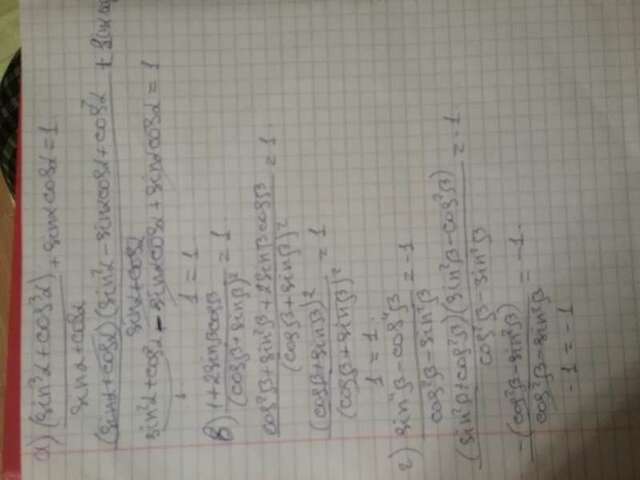 а) (sin³α + cos³α) / (sinα + cosα) + sinα cosα = 1
(sinα + cosα)(sin²α - sinαcosα + cos²α / (sinα + cosα) + sinα cos
sin²α + cos²α - sinαcosα + sinαcosα = 1
1
1 = 1
в) 1 + 2sinβcosβ / (cosβ + sinβ)² = 1
cos²β + sin²β + 2sinβcosβ / (cosβ + sinβ)² = 1
(cosβ + sinβ)² / (cosβ + sinβ)² = 1
1 = 1.
г) sin⁴β - cos⁴β / cos²β - sin²β = -1
(sin²β + cos²β)(sin²β - cos²β) / cos²β - sin²β = -1
-(cos²β - sin²β) / cos²β - sin²β = -1.
-1 = -1